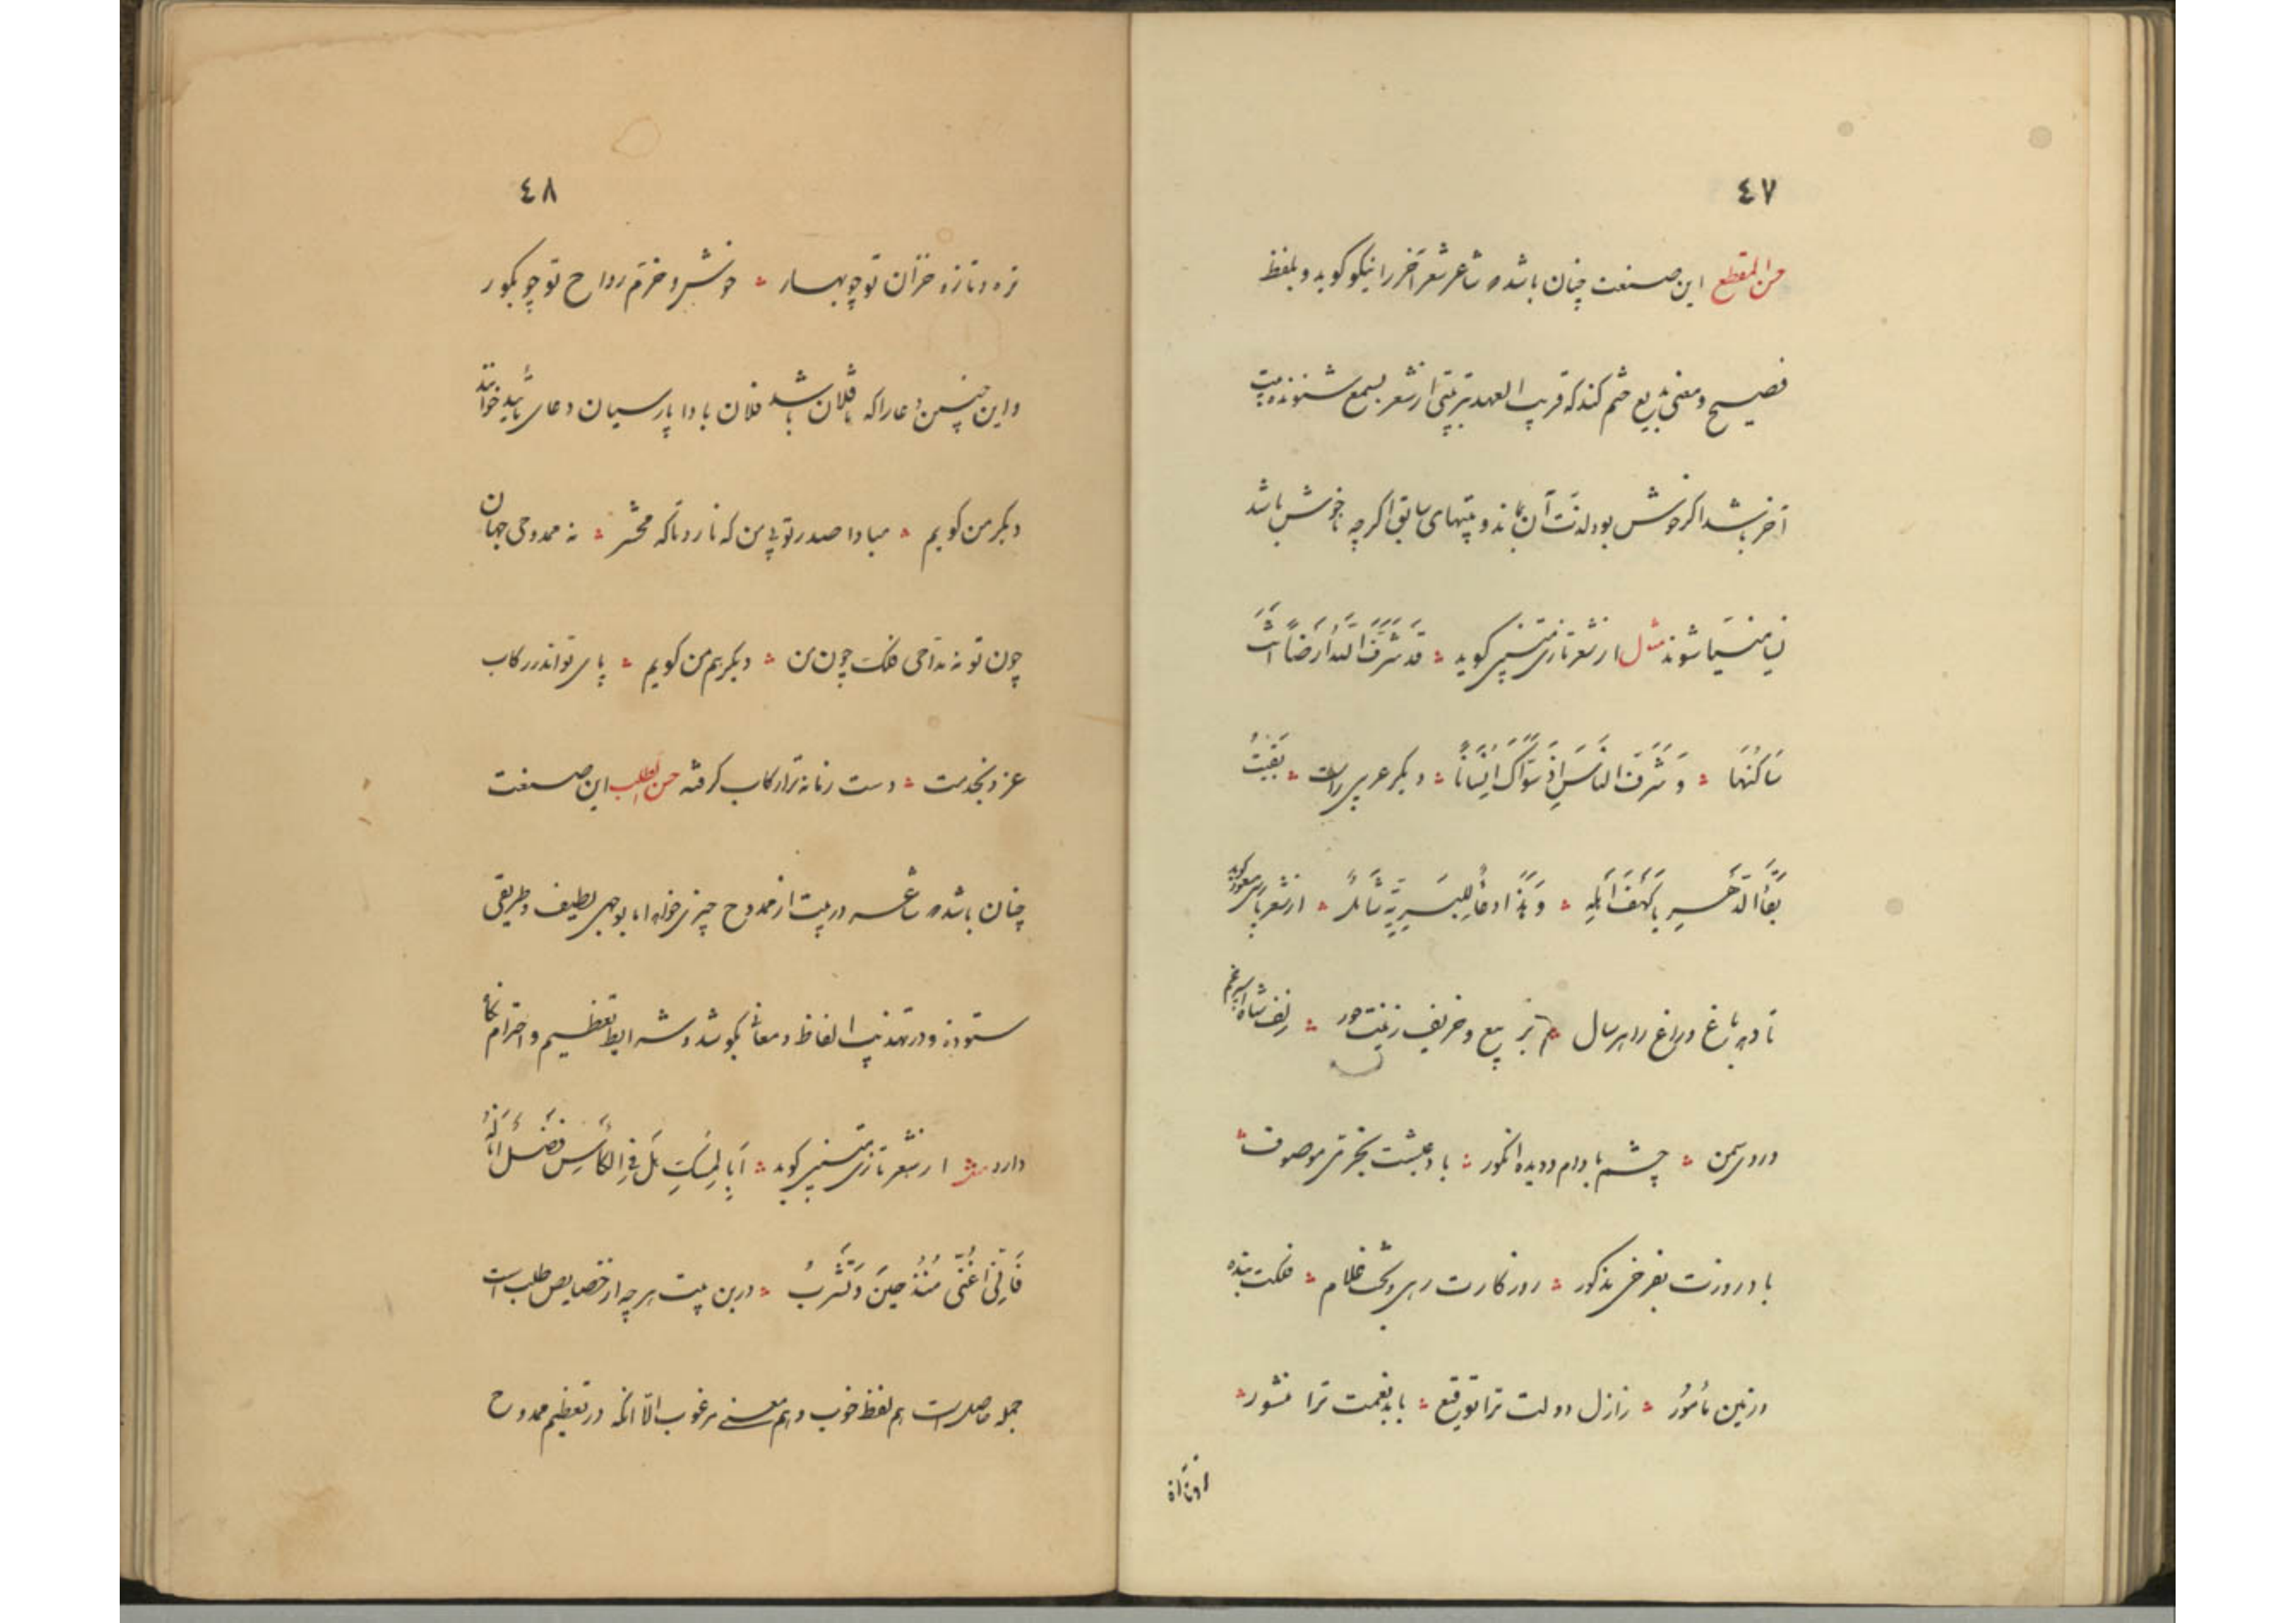 ٤٧
حسن المقطع این صنعت چنان باشد که شاعر شعر آخر را نیکو کوید و بلفظ
فصیح و معنی بدیع ختم کند که قریب العهد ترین بیتی از شعر بسمع شنونده بیت
آخر باشد اکر خوش بود لذت آن بماند و بیتهای سابق اکرچه ناخوش باشد
نسیا منسیا شوند مثال از شعر تازی متنبی کوید قَد شَرَّفَ اللهُ اَرضاً اَنتَ
سَاکنُهَا وَ شَرَّفَ الناسَ اِذ سَوّاکَ اِنسَاناً دیکر عربی راست بَقیتَ
بَقَاءَ الدَّهرِ یَا کَهفَ اَهلِهِ وَ هَذَا دُعَاءٌ لِلبَرِیَّةِ شَامِلٌ از شعر پارسی کوید
تا دهد باغ و راغ را هر سال ربیع و خریف زینت حور زلف شاه اسپرغم
و روی سمن چشم بادام و دیده انکور باد عیشت بخرمی موصوف
باد روزت بفرخی مذکور روزکارت رهی و بخت غلام فلکت بنده
و زمین مأمور از ازل دولت ترا توقیع با بد نعمت ترا منشور
٤٨
تره و تازه خزان تو چو بهار خوش و خرم رواح تو چو بکور
و این چنین دعا را که تا فلان باشد فلان بادا پارسیان دعای تأیید خوانند
دیکر من کویم مبادا صدر تو بی من که نارد تا که محشر نه ممدوحی جهان
چون تو نه مداحی فلک چون من دیکر هم من کویم پای تو اندر رکاب
عز و بخدمت دست زمانه ترا رکاب کرفته حسن الطلب این صنعت
چنان باشد که شاعر در بیت از ممدوح چیزی خواهد اما بوجهی لطیف و طریقی
ستوده و در تهذیب الفاظ و معانی بکوشد و شرایط تعظیم و احترام نکاه
دارد مثالش از شعر تازی متنبی کوید اَبَا المِسکِ هَل فِی الکَأسِ فَضلٌ اَنَالُهُ
فَاِنّی اُغَنّی مُنذُ حِینَ وَ تَشرَبُ درین بیت هر چه از خصایص طلب است
جمله حاصل است هم لفظ خوب و هم معنی مرغوب الا آنکه در تعظیم ممدوح